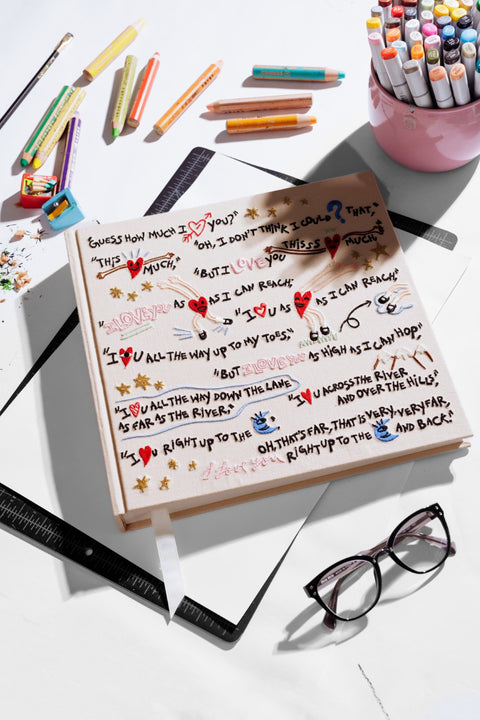 "GUESS HOW MUCH I YOU?"
"OH, I DON'T THINK I COULD ? THAT,"
"THIS MUCH,"
"BUT I LOVE YOU THISSS MUCH,
"I LOVE YOU AS AS I CAN REACH,"
"I U AS AS I CAN REACH,"
"I U ALL THE WAY UP TO MY TOES,"
"BUT I LOVE YOU AS HIGH AS I CAN HOP"
"I U ALL THE WAY DOWN THE LANE
AS FAR AS THE RIVER,"
"I U ACROSS THE RIVER
AND OVER THE HILLS,"
"I U RIGHT UP TO THE
OH, THAT'S FAR, THAT IS VERY-VERY FAR,
I love you RIGHT UP TO THE AND BACK."